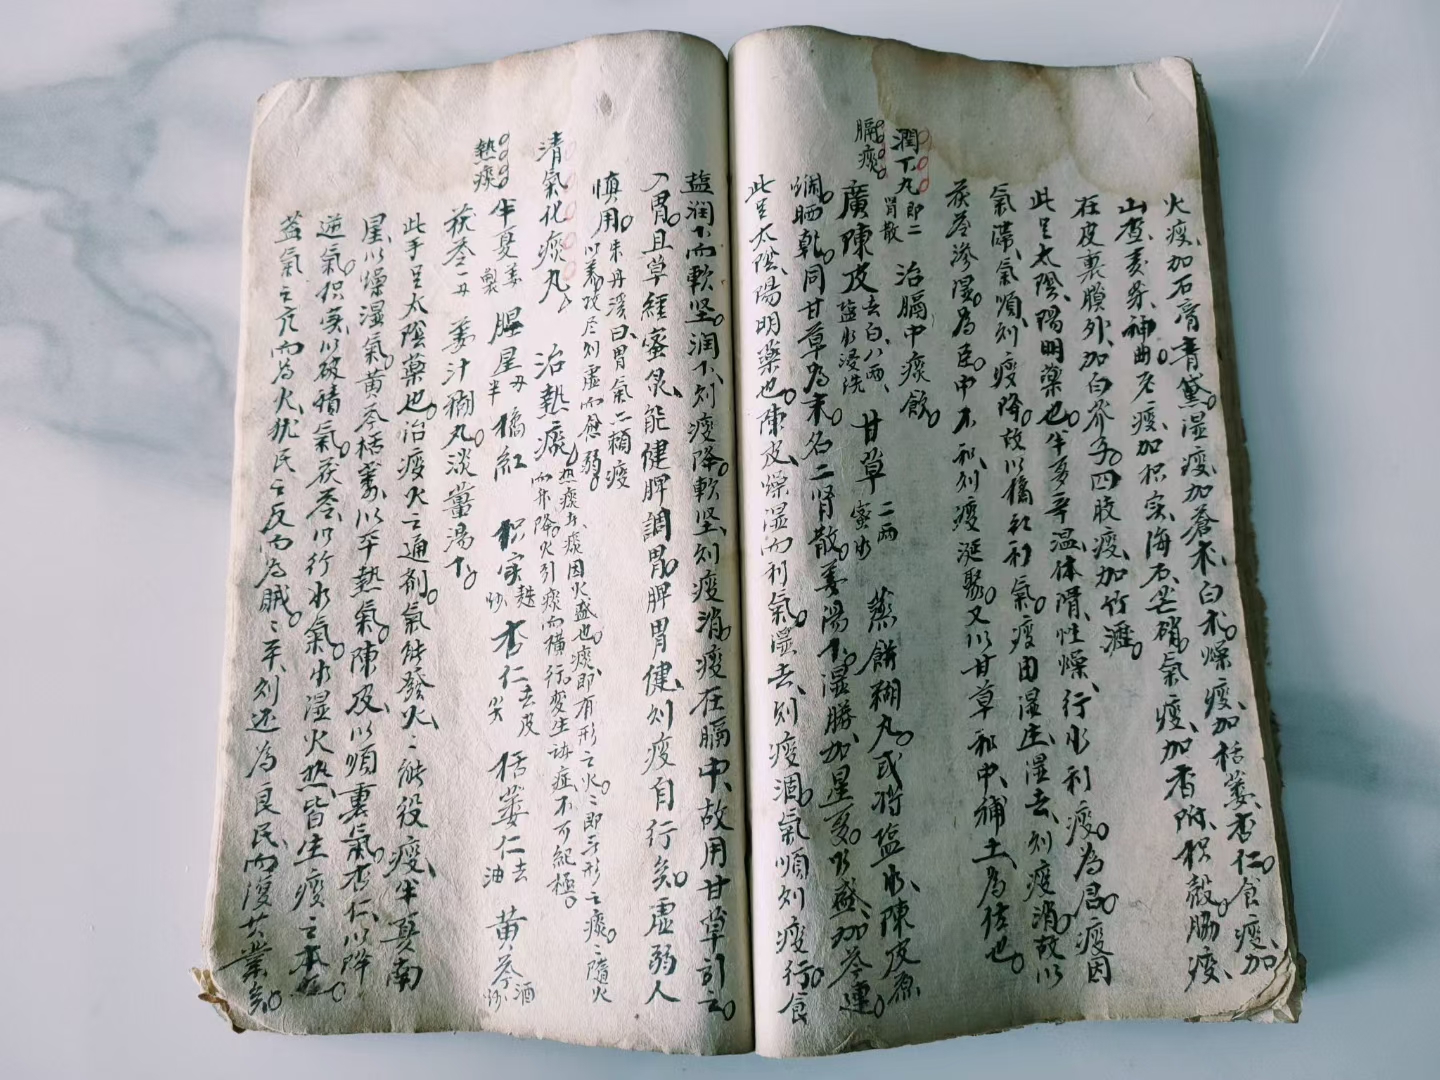 火痰加石膏青黛。湿痰加蒼朮白朮。燥痰加栝蒌杏仁。食痰加
山查麦芽神曲。老痰加枳实海石芒硝。氣痰加香附枳殼。脇痰
在皮裏膜外加白芥子。四肢痰加竹瀝。
此足太陰陽明藥也。半夏辛温体滑性燥行水利痰。為君。痰因
氣滞氣順則痰降。故以橘紅利氣。痰由湿生湿去則痰消。故以
茯苓滲湿。為臣。中不和則痰涎聚。又以甘草和中補土。為佐也。
潤下丸 即二胃散 治膈中痰飲。
膈痰
廣陳皮 去白八兩塩水浸洗 甘草 二兩蜜炙 蒸餅糊丸。或将塩水陳皮
爛晒乾。同甘草为末名二肾散。姜湯下。湿勝加星夏。火盛加芩連。
此足太陰陽明藥也。陳皮燥湿而利氣。湿去則痰涸。氣順則痰行。食
塩润下而軟坚。润下則痰降。軟坚則痰消。痰在膈中、故用甘草引之
入胃。且草經蜜炙、能健脾調胃。脾胃健則痰自行矣。虚弱人
慎用。朱丹溪曰胃氣亦賴痰以养攻尽則虚而愈弱。
清氣化痰丸 治熱痰。热痰者痰因火盛也。痰即有形之火。火即无形之痰。痰随火而升降火引痰而横行。变生诸症。不可纪極。
熱痰
半夏 姜製 胆星 各两半 橘紅 枳实 麸炒 杏仁 去皮尖 栝蒌仁 去油 黄芩 酒炒
茯苓一两 姜汁糊丸。淡薑湯下。
此手足太陰藥也。治痰火之通剂。氣能發火、火能役痰、半夏南
星以燥湿氣。黄芩栝蒌以平熱氣。陳皮以順裏氣。杏仁以降
逆氣。枳实以破積氣。茯苓以行水氣。水湿火热皆生痰之本也。
盖氣之亢而為火犹民之反而为贼。贼平則还為良民而復其業矣。